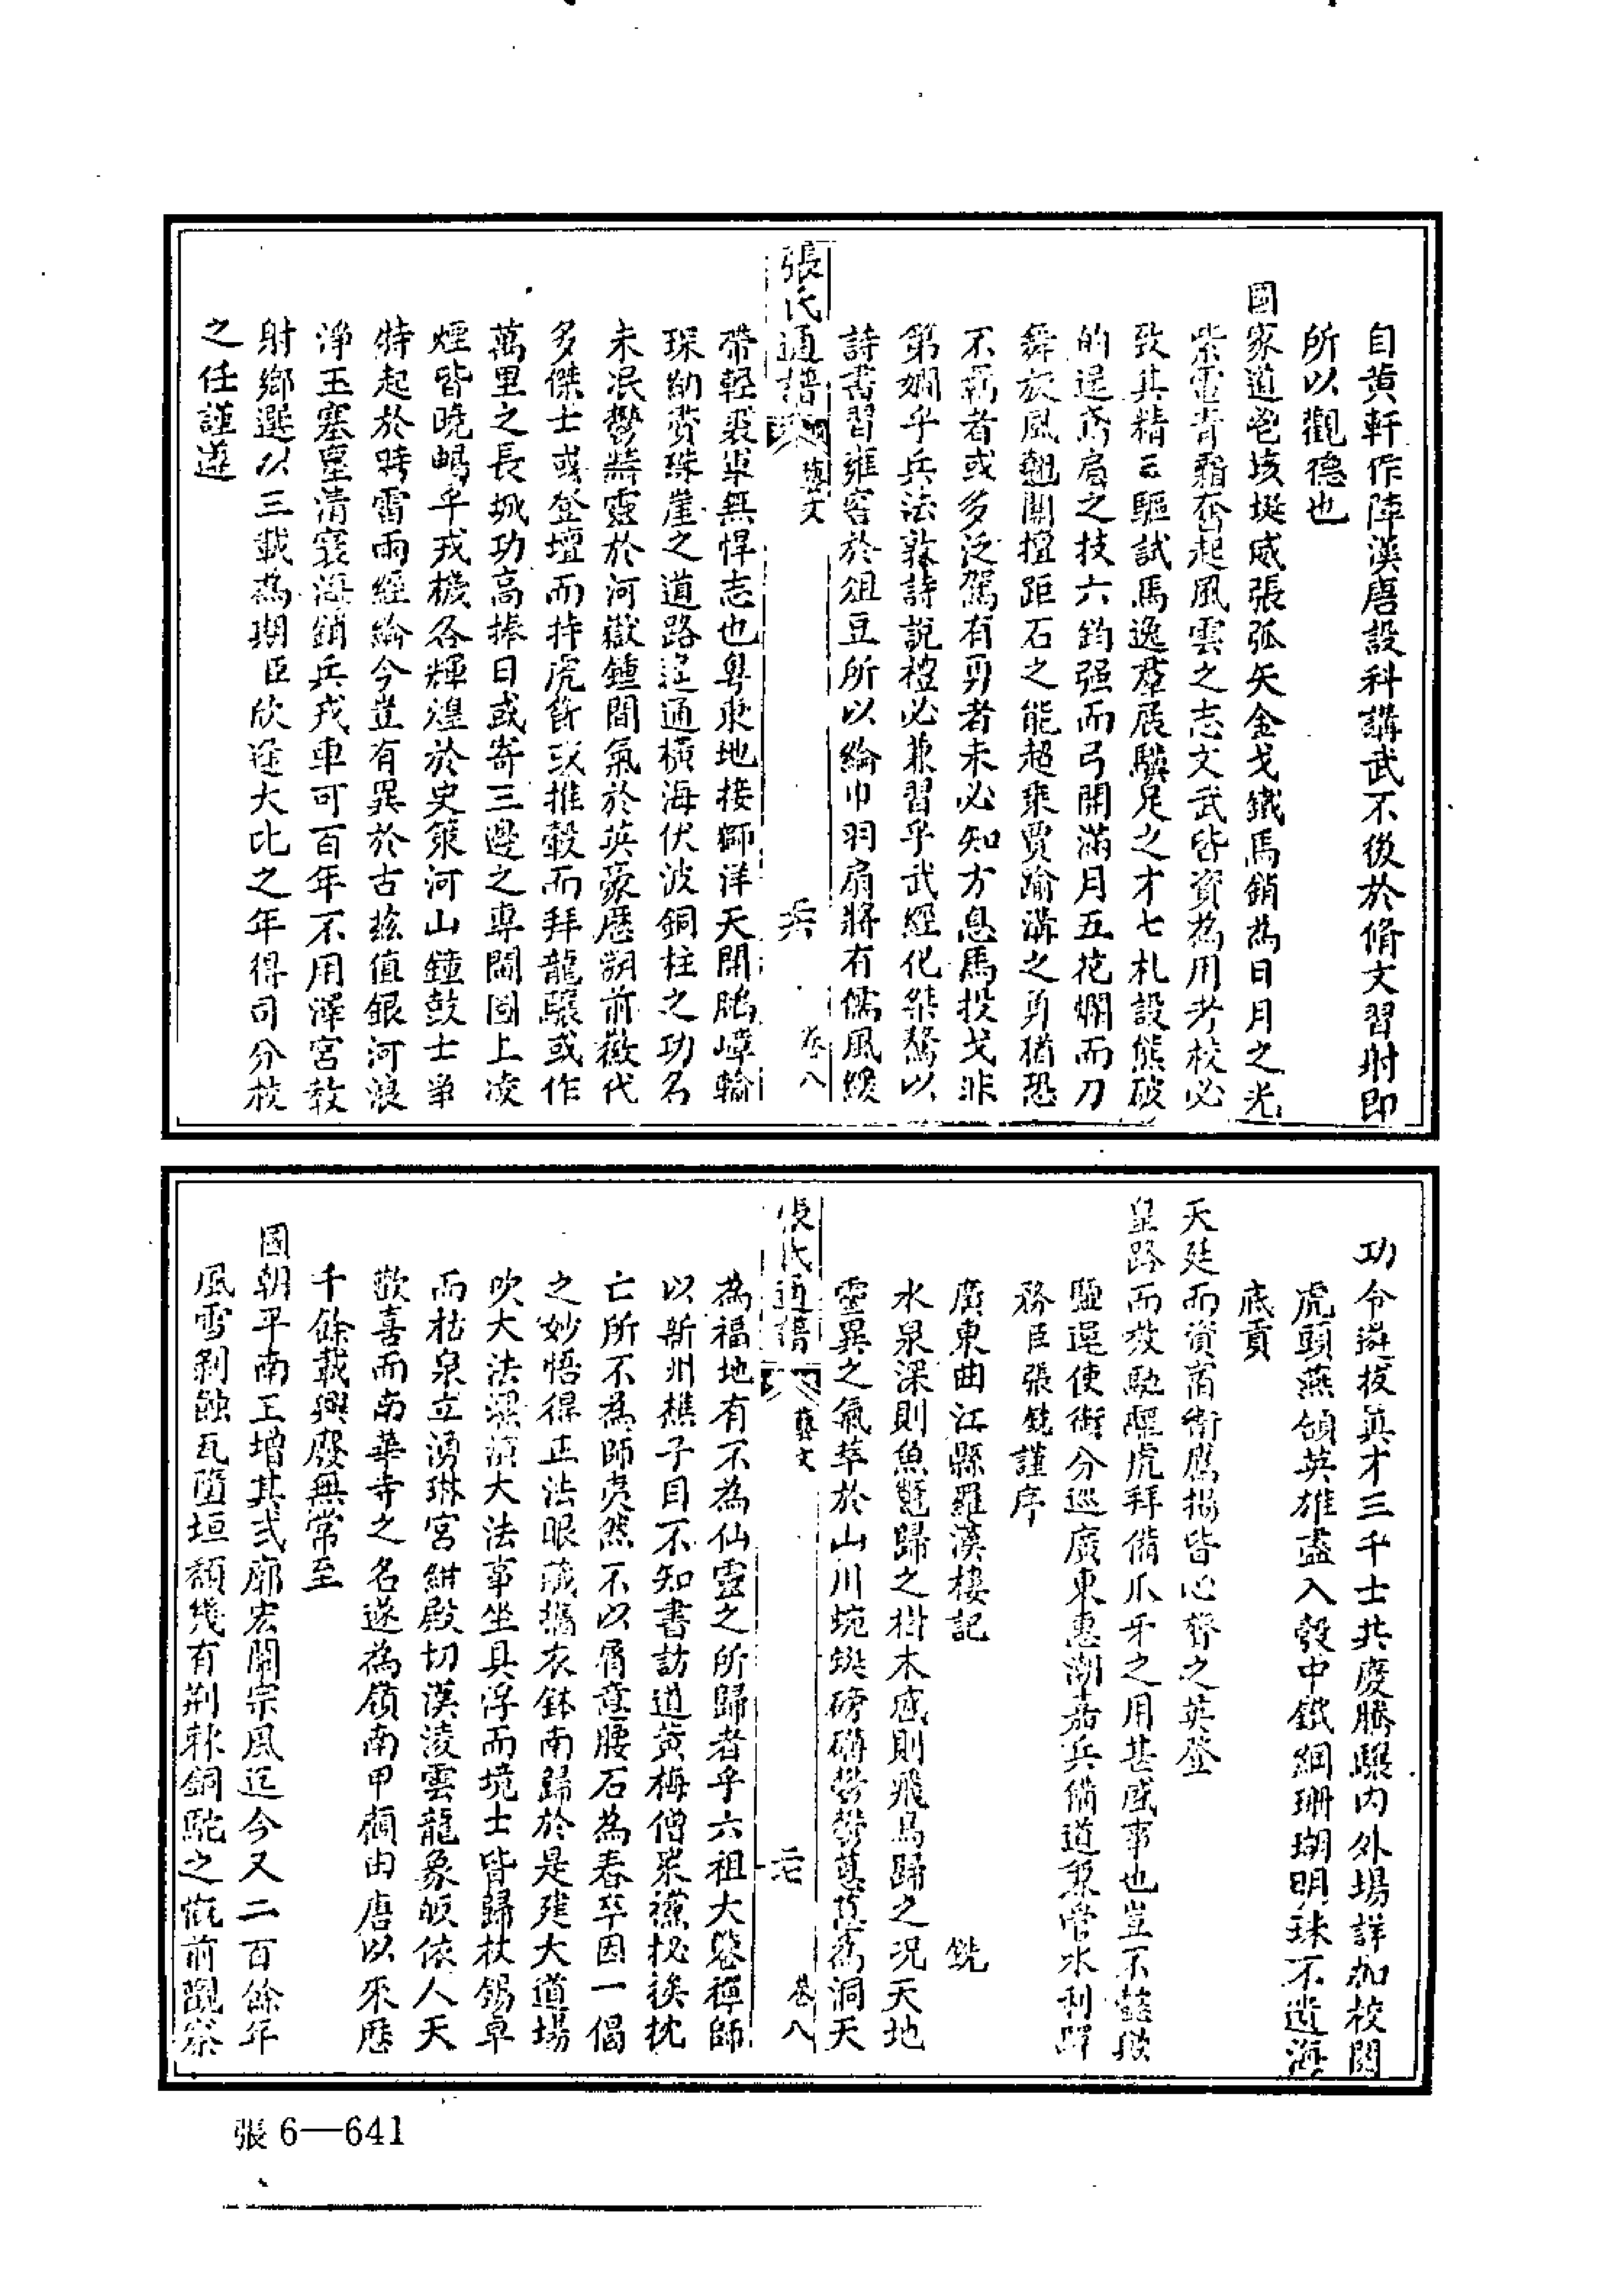 自黄軒作陣漢唐設科講武不後於脩文習射即
所以觀德也
國家道邑垓埏威張弧矢金戈鐵馬銷為日月之光
紫電青霜奮起風雲之志文武皆資為用考校必
致其精三驅試馬逸羣展驥足之才七札設熊破
的逞鳶肩之技六鈞强而弓開滿月五花爛而刀
舞旋風翹關擅距石之能超乘賈踰溝之勇猶恐
不羈者或多泛駕有勇者未必知方息馬投戈非
第嫻乎兵法敦詩說禮必兼習乎武經化桀驁以
詩書習雍容於俎豆所以綸巾羽扇將有儒風緩
張氏通譜
藝文
卷八
帶輕裘軍無悍志也粤東地接獅洋天開鵬嶂輸
琛納賮珠崖之道路遥通橫海伏波銅柱之功名
未泯鬱精靈於河嶽鍾間氣於英豪歷朔前徽代
多傑士或登壇而持虎節或推轂而拜龍驤或作
萬里之長城功高捧日或寄三邊之專閫圖上凌
煙皆曉暢乎戎機各輝煌於史策河山鐘鼓士爭
特起於時雷雨經綸今豈有異於古茲值銀河浪
淨玉塞塵清寰海銷兵戎車可百年不用澤宮教
射鄉選以三載為期臣欣逢大比之年得司分校
之任謹遵
功令遴拔真才三千士共慶騰驤内外場詳加校閱
虎頭燕頷英雄盡入彀中鐵網珊瑚明珠不遺海
底貢
天廷而資宿衛鷹揚皆心膂之英登
皇路而效馳驅虎拜備爪牙之用甚盛事也豈不懿歟
鹽運使銜分巡廣東惠潮嘉兵備道兼管水利驛
務臣張銑謹序
廣東曲江縣羅漢樓記 銑
水泉深則魚鼈歸之樹木盛則飛鳥歸之况天地
靈異之氣萃於山川埦埏磅礴鬱鬱蔥蔥為洞天
張氏通譜
藝文
卷八
為福地有不為仙靈之所歸者乎六祖大鑒禪師
以新州樵子目不知書訪道黄梅僧寮襆被挨枕
亡所不為師夷然不以屑意腰石為舂卒因一偈
之妙悟得正法眼藏攜衣鉢南歸於是建大道場
吹大法螺演大法事坐具浮而境士皆歸杖錫卓
而枯泉立湧琳宮紺殿切漢淩雲龍象皈依人天
歡喜而南華寺之名遂為嶺南甲顧由唐以來歷
千餘載興廢無常至
國朝平南王增其式廓宏開宗風迄今又二百餘年
風雪剝蝕瓦墮垣頹幾有荆棘銅駝之慨前觀察
張6—641